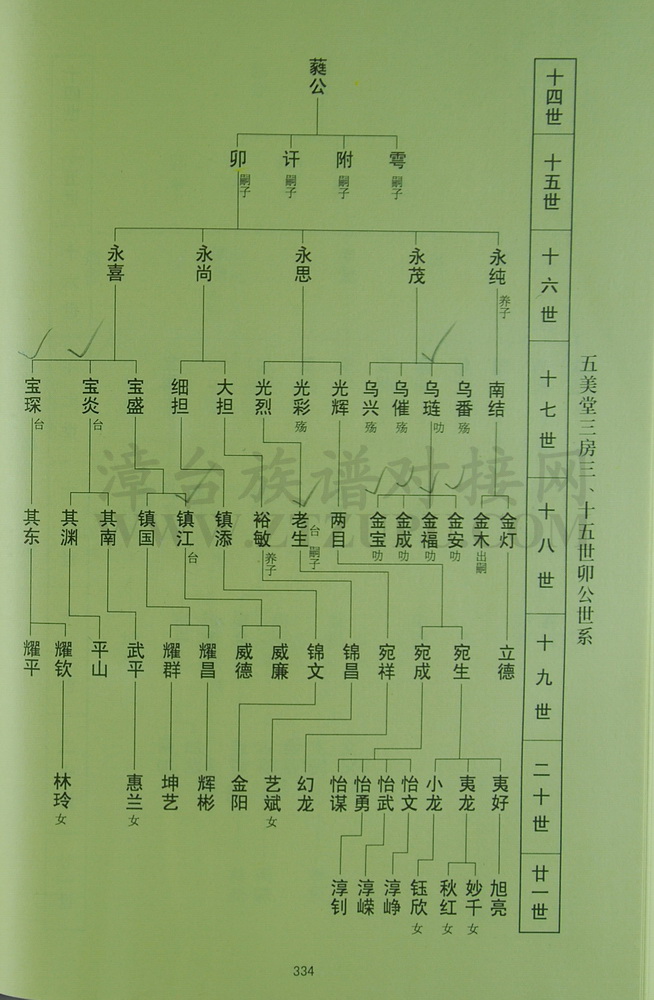 五美堂三房三、十五世卯公世系
十四世
十五世
十六世
十七世
十八世
十九世
二十世
廿一世
蕤公
雩 嗣子
附 嗣子
讦 嗣子
卯 嗣子
永纯 养子
永茂
永思
永尚
永喜
南结
乌番 殇
乌琏 叻
乌催 殇
乌兴 殇
光辉
光彩 殇
光烈
大担
细担
宝盛
宝炎 台
宝琛 台
金灯
金木 出嗣
金安 叻
金福 叻
金成 叻
金宝 叻
两目
老生 台 嗣子
裕敏 养子
镇添
镇江 台
镇国
其南
其渊
其东
立德
宛生
宛成
宛祥
锦昌
锦文
威廉
威德
耀昌
耀群
武平
平山
耀钦
耀平
夷好
夷龙
小龙
怡文
怡武
怡勇
怡谋
幻龙
艺斌 女
金阳
辉彬
坤艺
惠兰 女
林玲 女
旭亮
妙千 女
秋红 女
钰欣 女
淳峥
淳嵘
淳钊
漳台族谱对接网
334